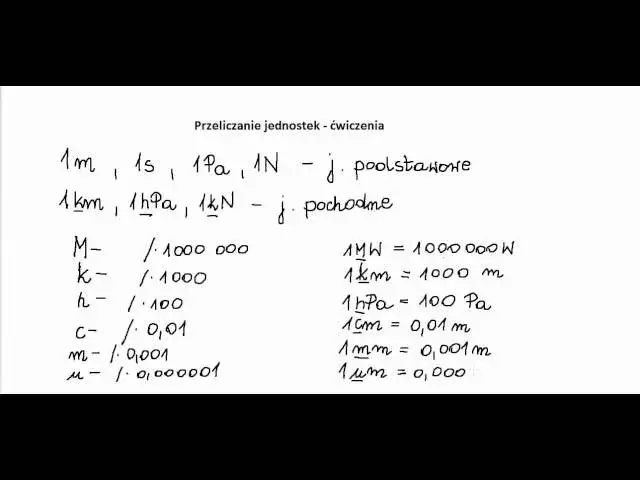 Przeliczanie jednostek - ćwiczenia
1m , 1s , 1Pa , 1N – j. podstawowe
1km , 1hPa , 1kN – j. pochodne
M – /· 1000 000
k – /· 1000
h – /· 100
c – /· 0,01
m – /· 0,001
μ – /· 0,000001
1MW = 1000 000W
1km = 1000 m
1hPa = 100 Pa
1cm = 0,01 m
1mm = 0,001m
1μm = 0,000